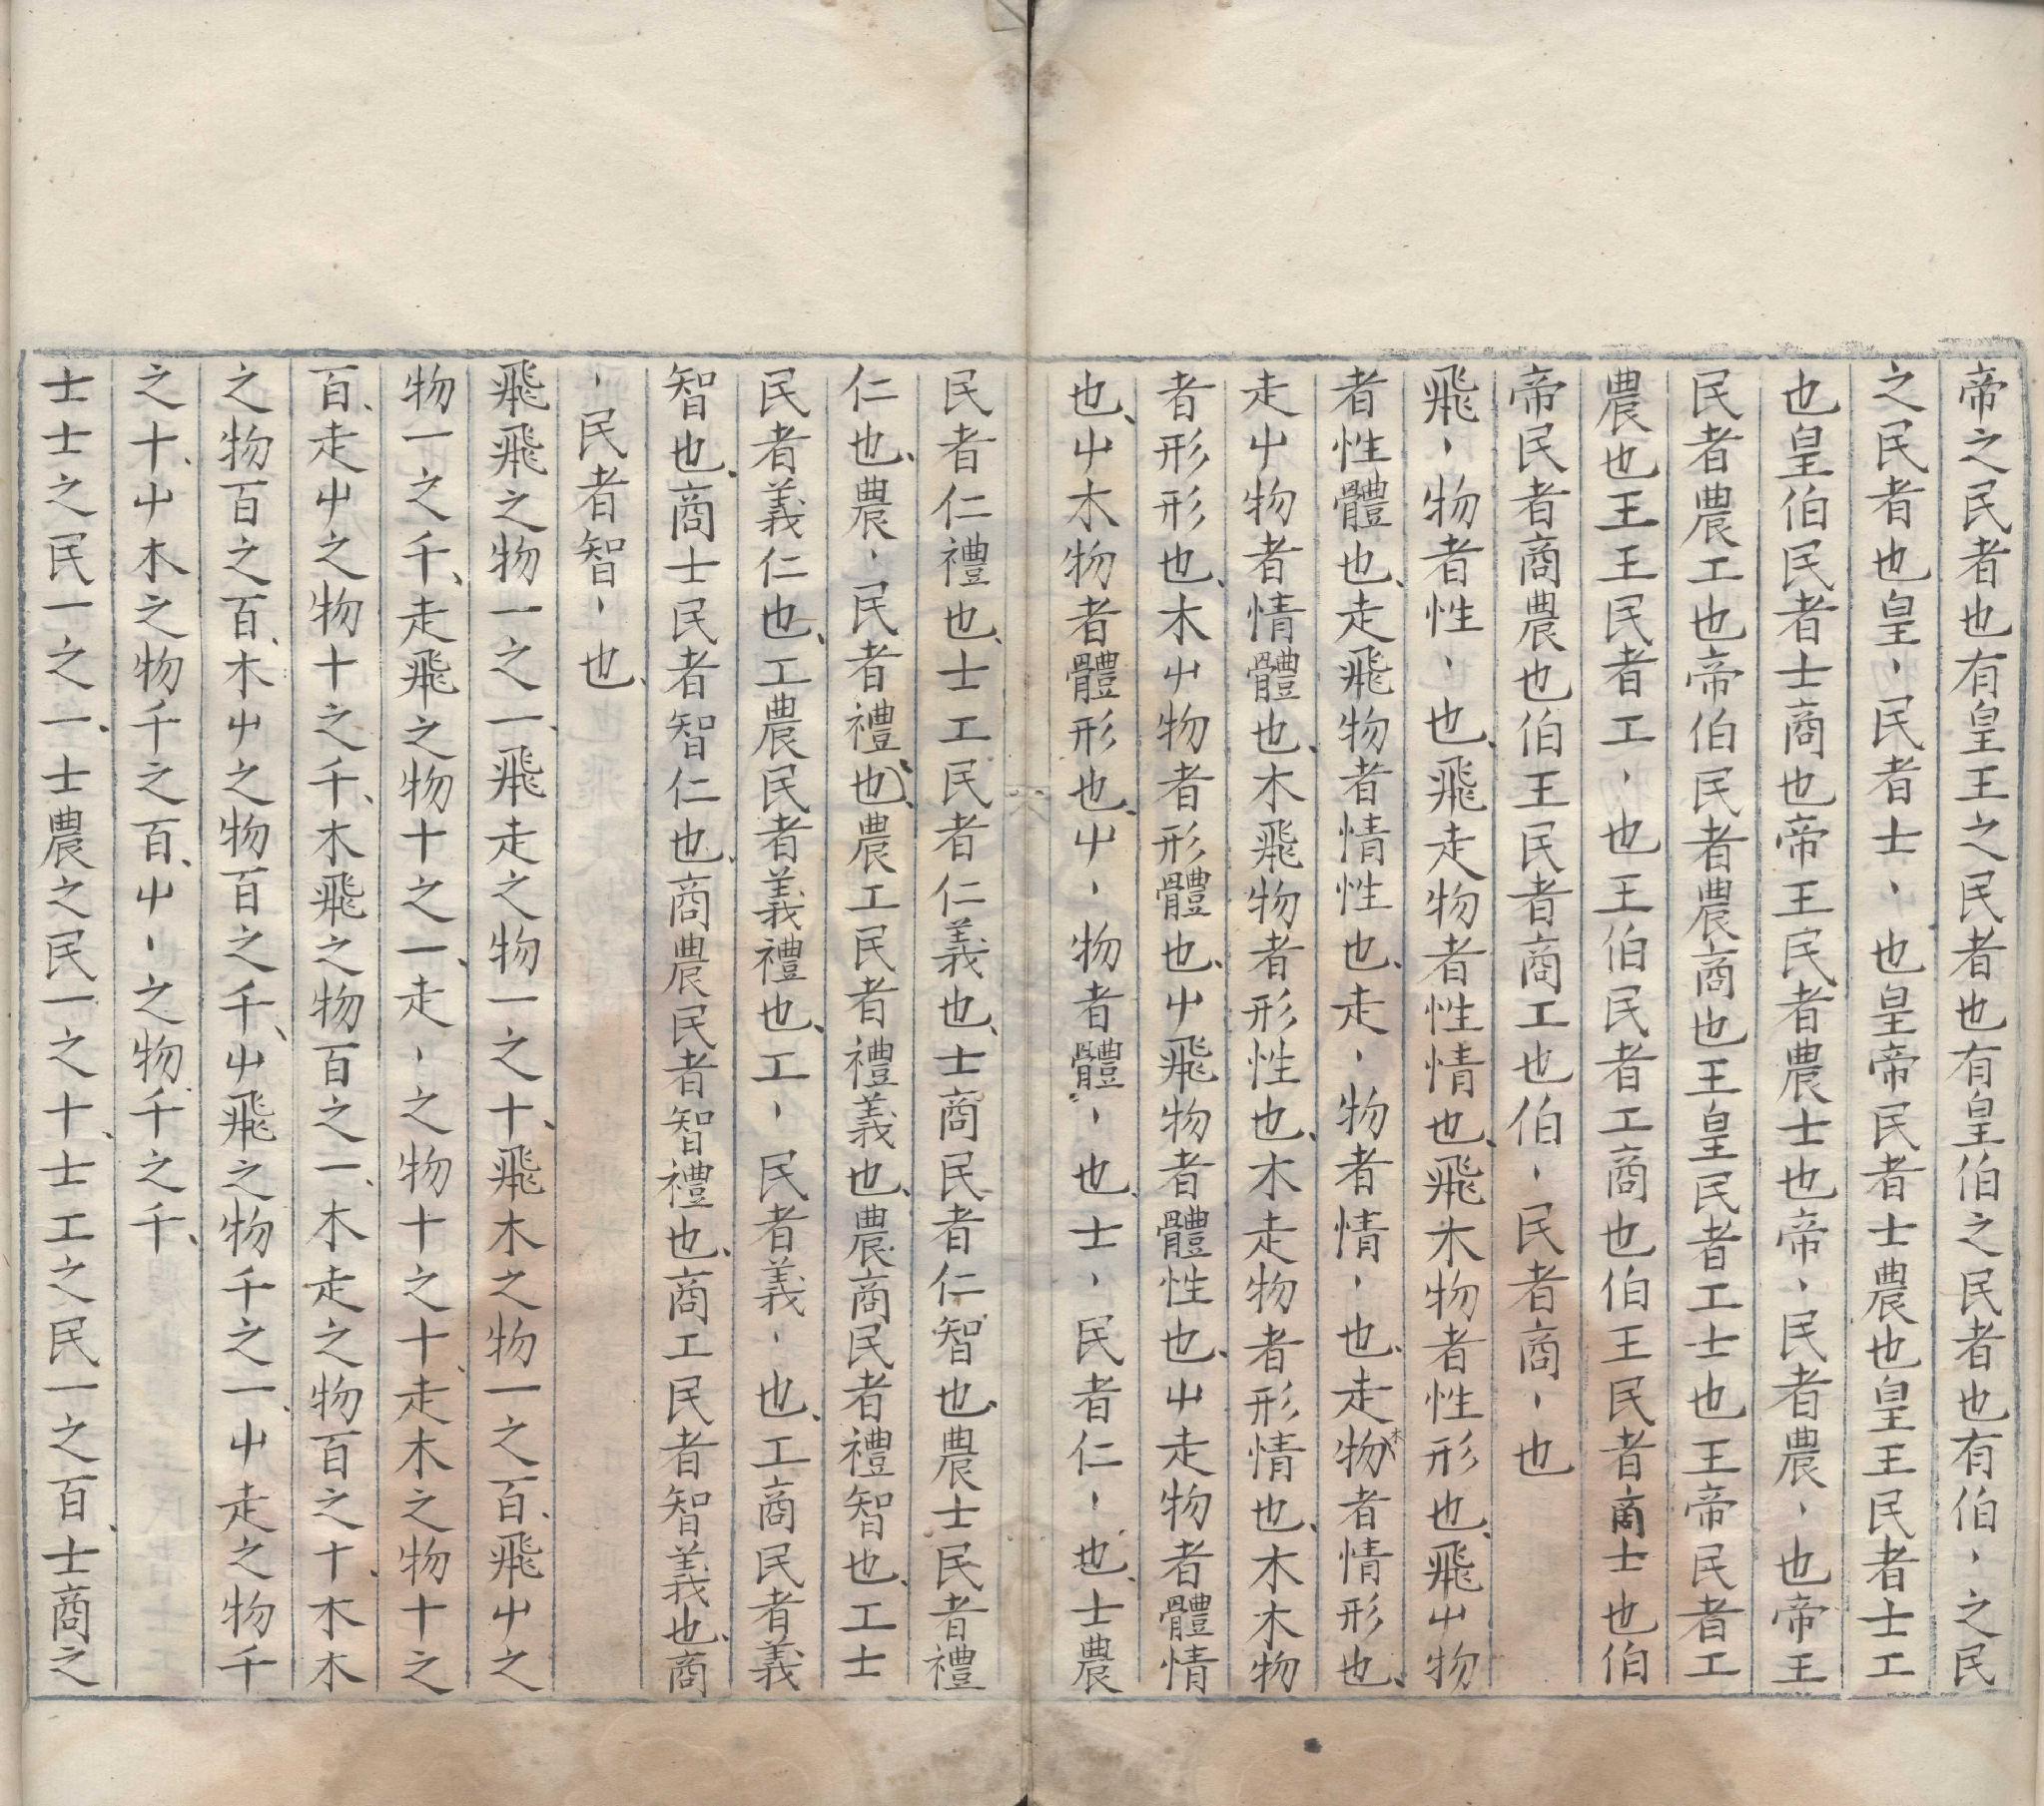 帝之民者也有皇王之民者也有皇伯之民者也有伯〻之民
之民者也皇〻民者士〻也皇帝民者士農也皇王民者士工
也皇伯民者士商也帝王民者農士也帝〻民者農〻也帝王
民者農工也帝伯民者農商也王皇民者工士也王帝民者工
農也王王民者工〻也王伯民者工商也伯王民者商士也伯
帝民者商農也伯王民者商工也伯〻民者商〻也
飛〻物者性〻也、飛走物者性情也、飛木物者性形也、飛屮物
者性體也、走飛物者情性也、走〻物者情〻也、走木物者情形也、
走屮物者情體也、木飛物者形性也、木走物者形情也、木木物
者形形也、木屮物者形體也、屮飛物者體性也、屮走物者體情
也、屮木物者體形也、屮〻物者體〻也、士〻民者仁〻也、士農
民者仁禮也、士工民者仁義也、士商民者仁智也、農士民者禮
仁也、農〻民者禮也、農工民者禮義也、農商民者禮智也、工士
民者義仁也、工農民者義禮也、工〻民者義〻也、工商民者義
智也、商士民者智仁也、商農民者智禮也、商工民者智義也、商
〻民者智〻也、
飛飛之物一之一、飛走之物一之十、飛木之物一之百、飛屮之
物一之千、走飛之物十之一、走〻之物十之十、走木之物十之
百、走屮之物十之千、木飛之物百之一、木走之物百之十、木木
之物百之百、木屮之物百之千、屮飛之物千之一、屮走之物千
之十、屮木之物千之百、屮〻之物千之千、
士士之民一之一、士農之民一之十、士工之民一之百、士商之